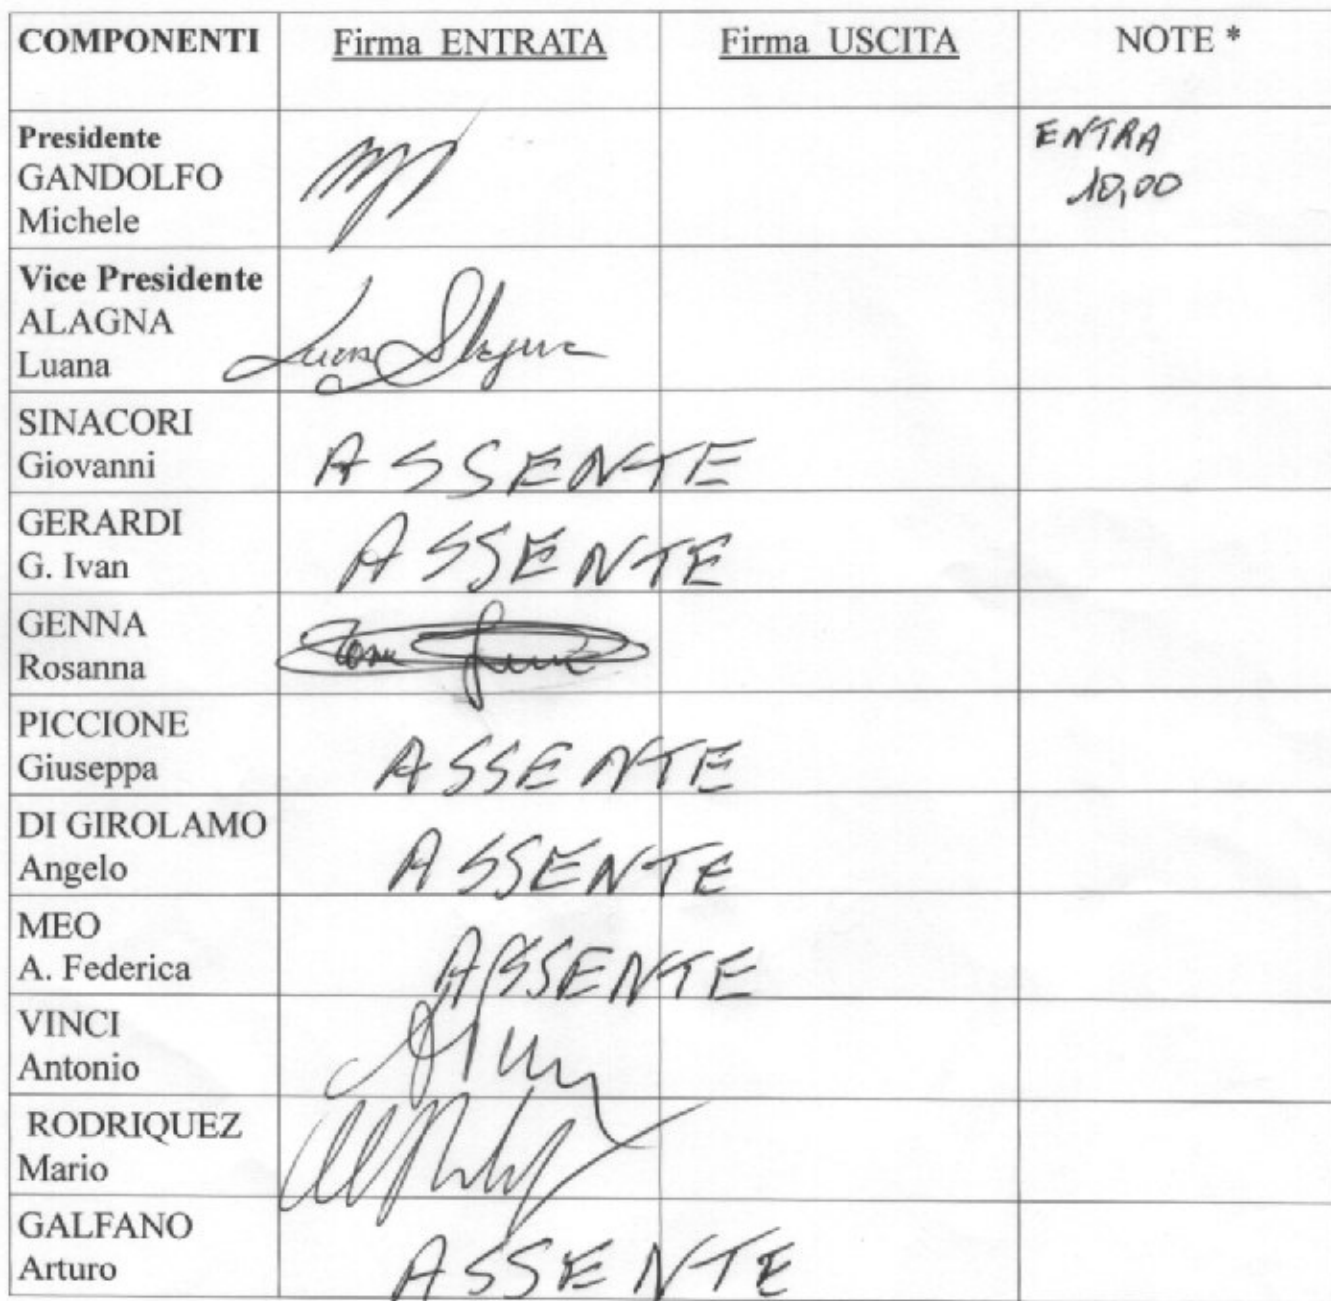 COMPONENTI Firma ENTRATA Firma USCITA NOTE *
Presidente
GANDOLFO
Michele
ENTRA
10,00
Vice Presidente
ALAGNA
Luana
Luana Alagna
SINACORI
Giovanni
ASSENTE
GERARDI
G. Ivan
ASSENTE
GENNA
Rosanna
PICCIONE
Giuseppa
ASSENTE
DI GIROLAMO
Angelo
ASSENTE
MEO
A. Federica
ASSENTE
VINCI
Antonio
RODRIQUEZ
Mario
GALFANO
Arturo
ASSENTE